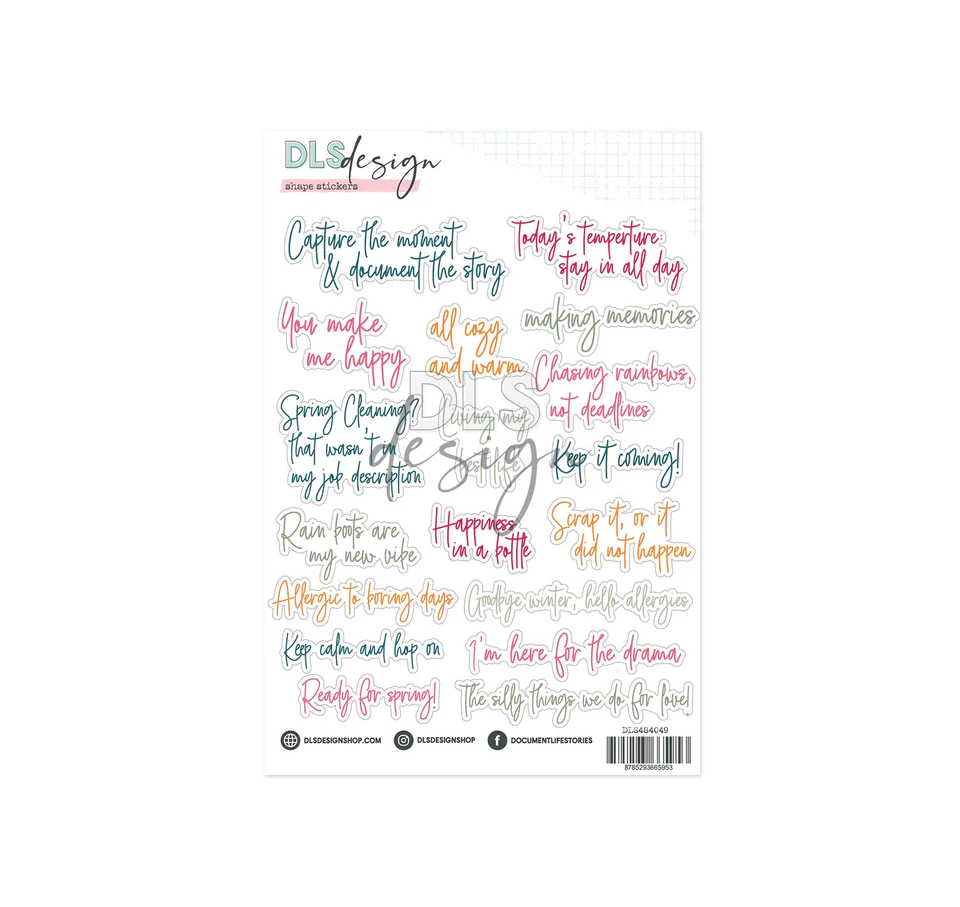 DLSdesign
shape stickers
Capture the moment
& document the story
Today's temperture:
stay in all day
You make
me happy
all cozy
and warm
making memories
Chasing rainbows,
not deadlines
Spring Cleaning?
that wasn't in
my job description
living my
best life
DLS
design
Keep it coming!
Rain boots are
my new vibe
Happiness
in a bottle
Scrap it, or it
did not happen
Allergic to boring days
Goodbye winter, hello allergies
Keep calm and hop on
I'm here for the drama
Ready for spring!
The silly things we do for love!
DLSDESIGNSHOP.COM
DLSDESIGNSHOP
DOCUMENTLIFESTORIES
DLS484049
8785293665953